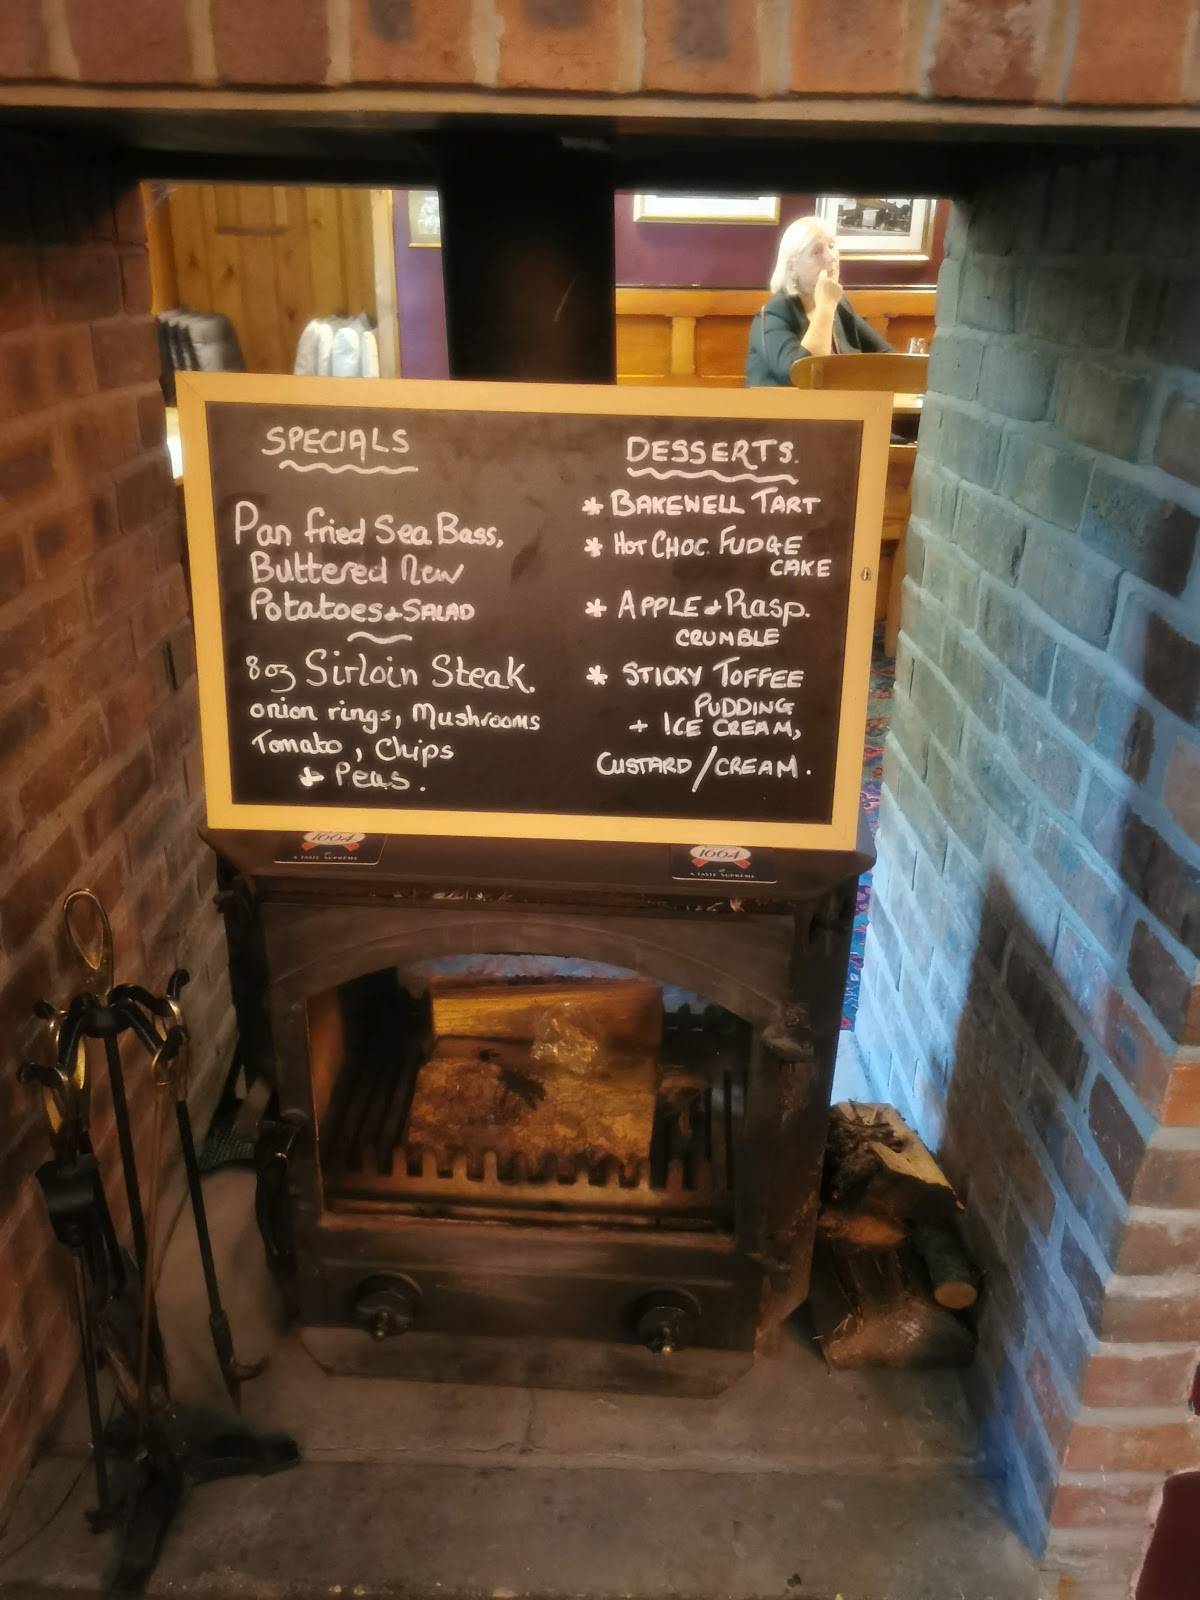 SPECIALS
Pan fried Sea Bass,
Buttered New
Potatoes + SALAD
8oz Sirloin Steak.
onion rings, Mushrooms
Tomato, Chips
+ Peas.
DESSERTS.
* BAKEWELL TART
* HOT CHOC. FUDGE
CAKE
* APPLE + Rasp.
CRUMBLE
* STICKY TOFFEE
PUDDING
+ ICE CREAM,
CUSTARD/CREAM.
1664
A TASTE SUPREME
1664
A TASTE SUPREME